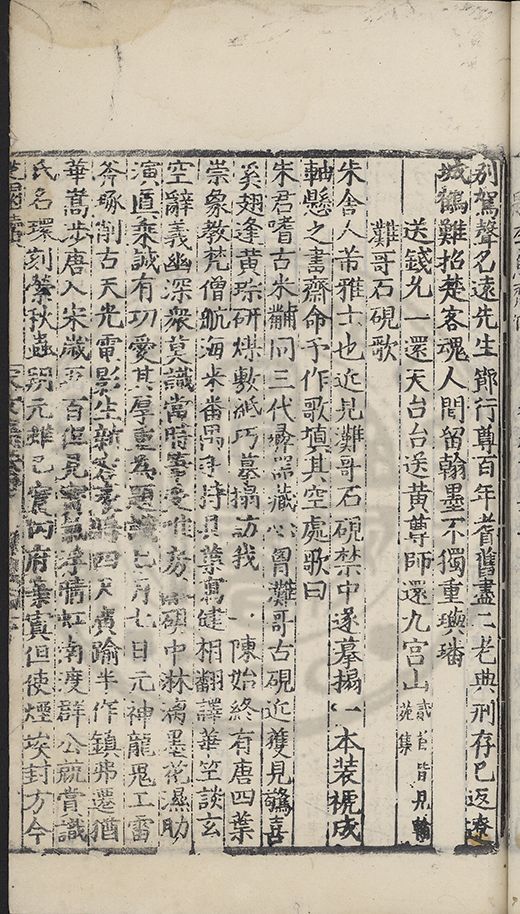 別駕聲名遠先生節行尊百年耆舊盡二老典刑存已返遼
城鶴難招楚客魂人間留翰墨不獨重璵璠
送錢兄一還天台台送黄尊師還九宫山貳首皆見翰苑集
難哥石硯歌
朱舍人芾雅士也近見難哥石硯禁中遂摹搨一本装褫成
軸懸之書齋命予作歌填其空處歌曰
朱君嗜古朱黼同三代彝器藏心胷難哥古硯近獲見驚喜
奚翅逢黄琮研煤敷紙巧摹搨訪我一一陳始終有唐四葉
崇象教梵僧航海来番禺手持貝葉寫健相翻譯華笁談玄
空辭義幽深衆莫識當時筆受唯房融硯中淋漓墨花濕助
演直乘誠有功愛其厚重為題識七月七日元神龍鬼工雷
斧琢削古天光電影生新容 四尺廣踰半作鎮弗遷猶
華嵩歩唐入宋歳五百但見 浮晴虹南渡群公競賞識
氏名環刻縈秋蟲 元雖已實 府棄寘但使煙埃封方今